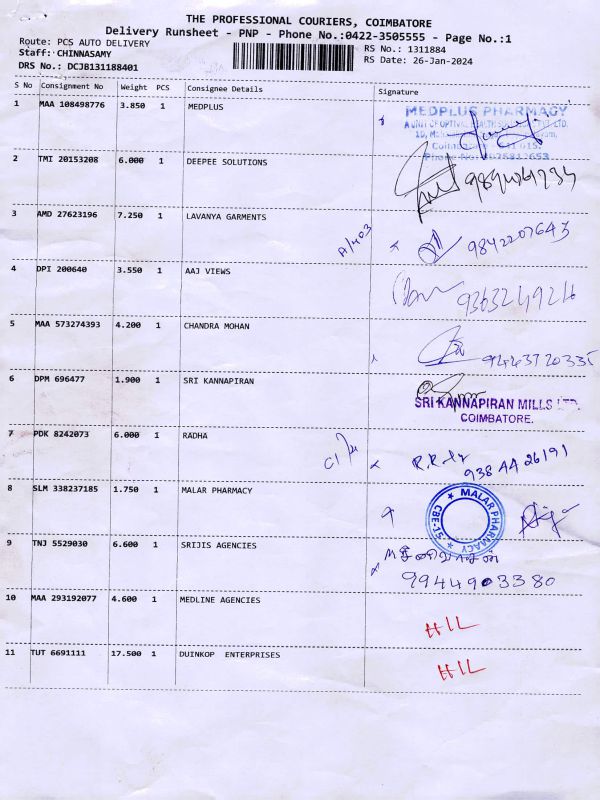 THE PROFESSIONAL COURIERS, COIMBATORE
Delivery Runsheet - PNP - Phone No.:0422-3505555 - Page No.:1
Route: PCS AUTO DELIVERY RS No.: 1311884
Staff: CHINNASAMY RS Date: 26-Jan-2024
DRS No.: DCJB131188401
S No Consignment No Weight PCS Consignee Details Signature
1 MAA 108498776 3.850 1 MEDPLUS
MEDPLUS PHARMACY
2 TMI 20153208 6.000 1 DEEPEE SOLUTIONS
3 AMD 27623196 7.250 1 LAVANYA GARMENTS
A/403 9842207643
4 DPI 200640 3.550 1 AAJ VIEWS
9363249216
5 MAA 573274393 4.200 1 CHANDRA MOHAN
9443720335
6 DPM 696477 1.900 1 SRI KANNAPIRAN
SRI KANNAPIRAN MILLS LTD.
COIMBATORE.
7 PDK 8242073 6.000 1 RADHA
938 44 26191
8 SLM 338237185 1.750 1 MALAR PHARMACY
MALAR PHARMACY CBE-15
9 TNJ 5529030 6.600 1 SRIJIS AGENCIES
9944903380
10 MAA 293192077 4.600 1 MEDLINE AGENCIES
HIL
11 TUT 6691111 17.500 1 DUINKOP ENTERPRISES
HIL